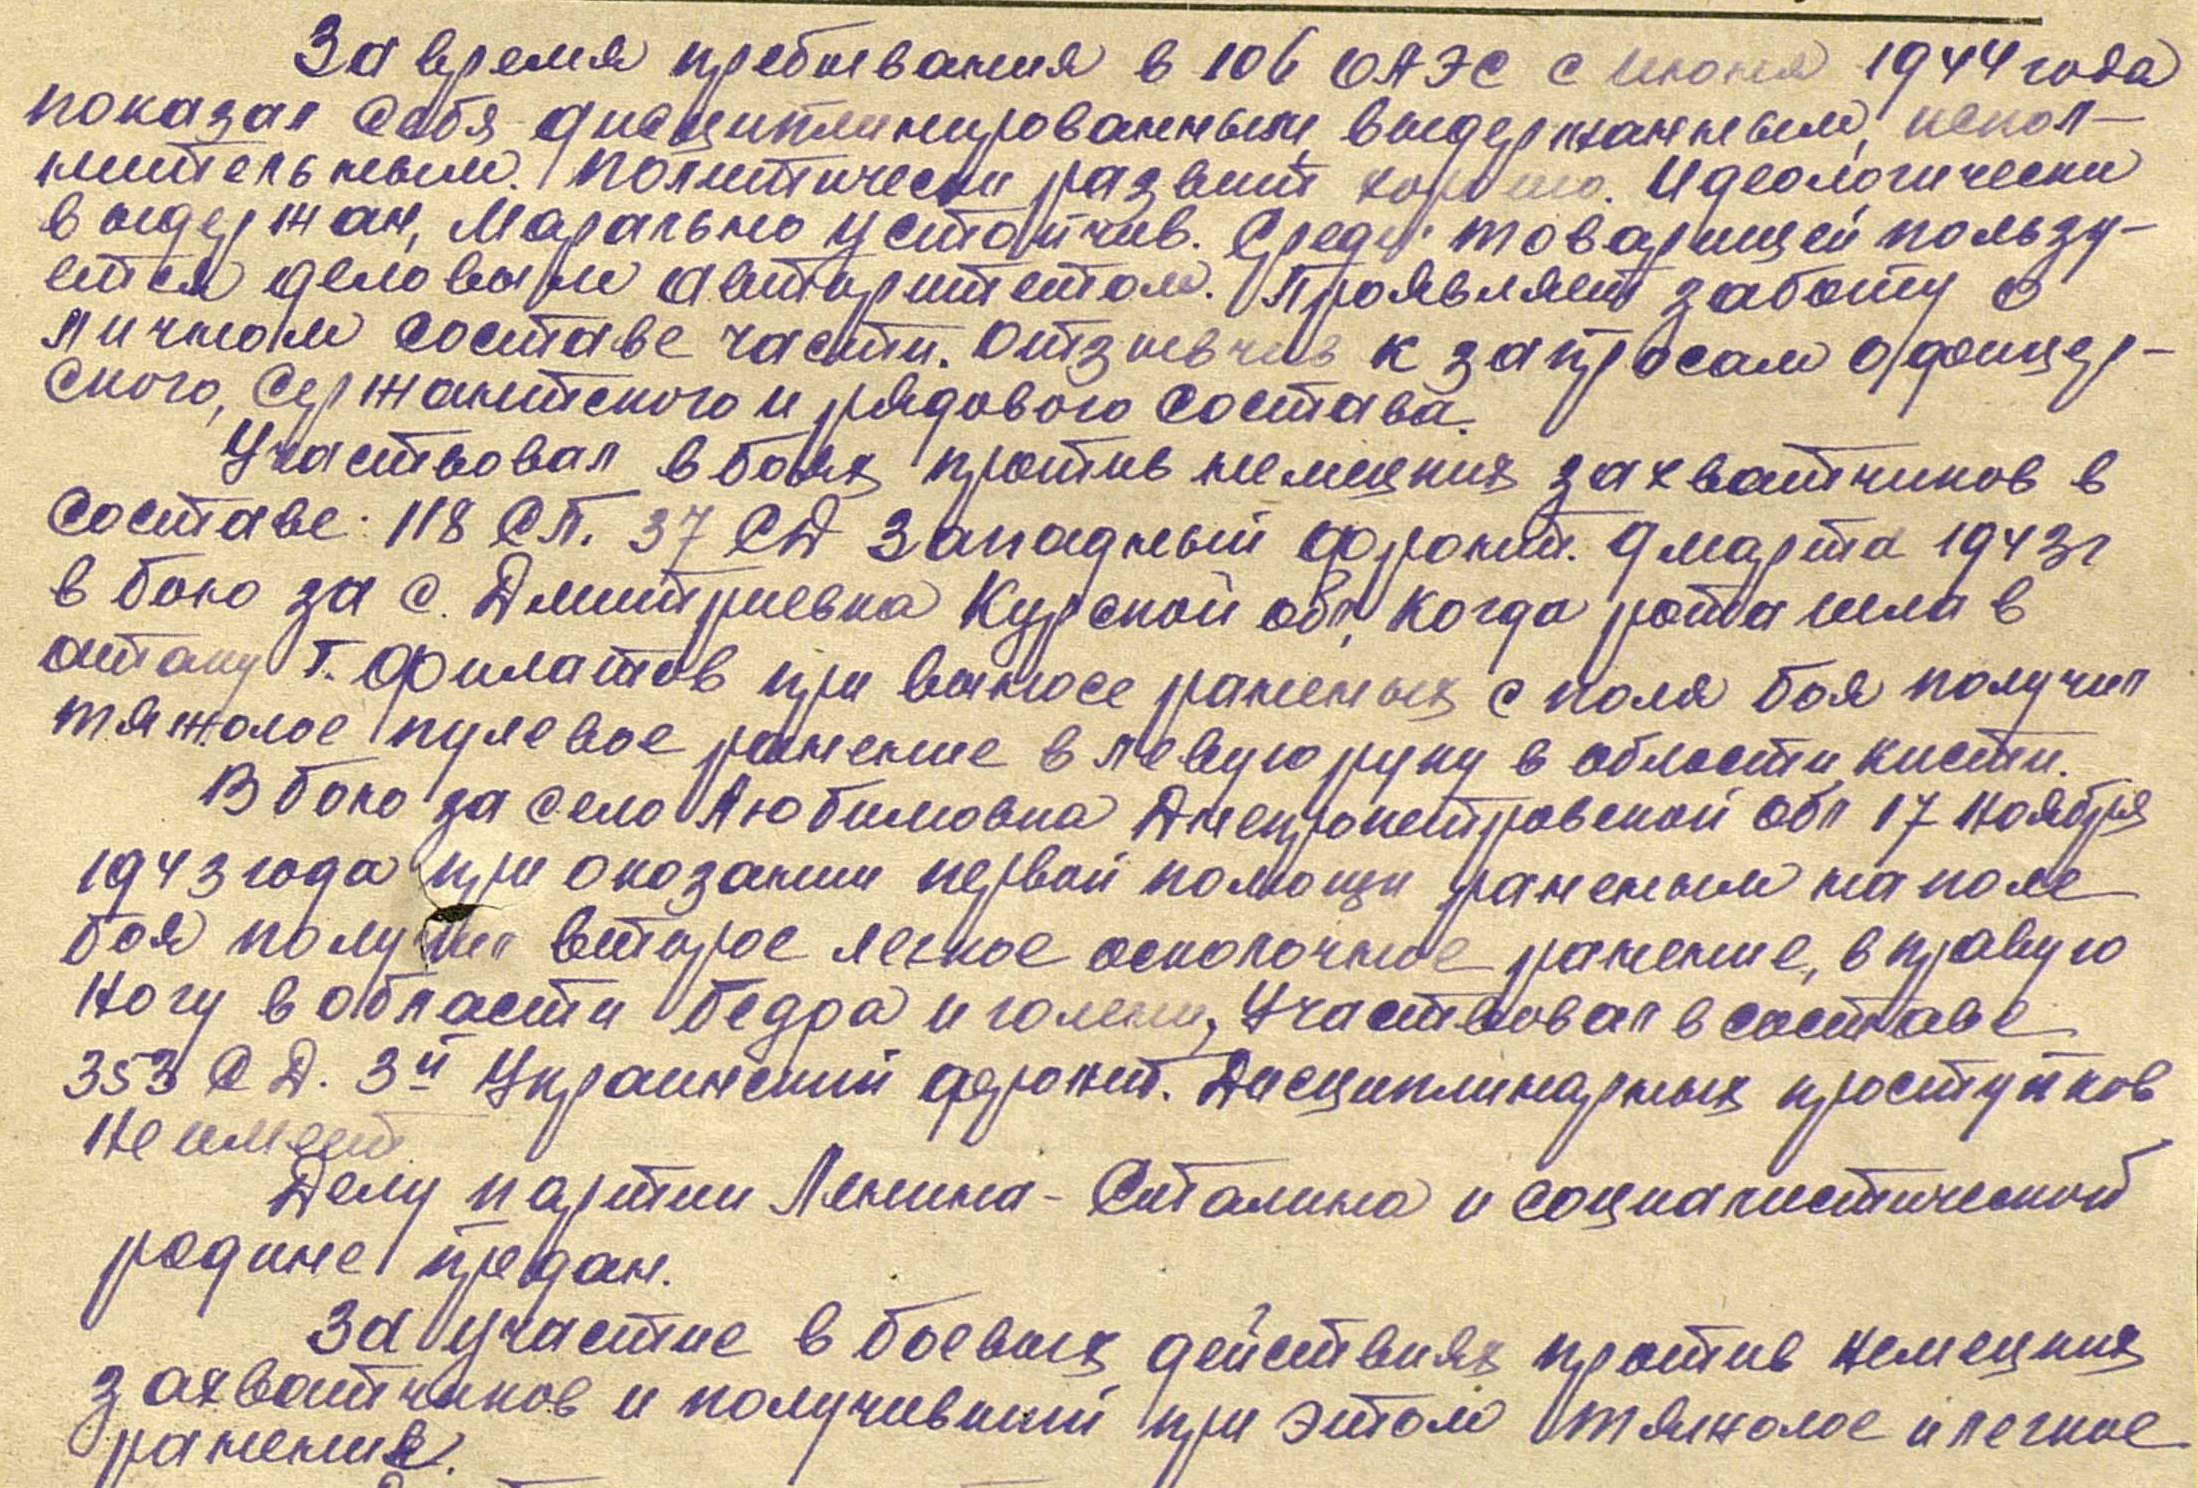 За время пребывания в 106 ОАЭС с июня 1944 года
показал себя дисциплинированным, выдержанным, испол-
нительным. Политически развит хорошо. Идеологически
выдержан, Марально устойчив. Среди товарищей пользу-
ется деловым авторитетом. Проявляет заботу о
личном составе части. Отзывчив к запросам офицер-
ского, Сержантского и рядового состава.
Участвовал в боях против немецких захватчиков в
составе: 118 СП. 37 СД Западный фронт. 9 марта 1943г
в бою за с. Дмитриевка Курской обл, когда рота шла в
атаку т. Филатов при выносе раненых с поля боя получил
тяжолое пулевое ранение в левую руку в области кисти.
В бою за село Любимовка Днепропетровской обл 17 Ноября
1943 года при оказании первой помощи раненым на поле
боя получил второе легкое осколочное ранение, в правую
Ногу в области бедра и голени, Участвовал в составе
353 СД. 3й Украинский фронт. Дисциплинарных проступков
Не имеет.
Делу партии Ленина-Сталина и социалистической
родине предан.
За участие в боевых действиях против Немецких
захватчиков и получивший при этом тяжолое и легкое
ранения.